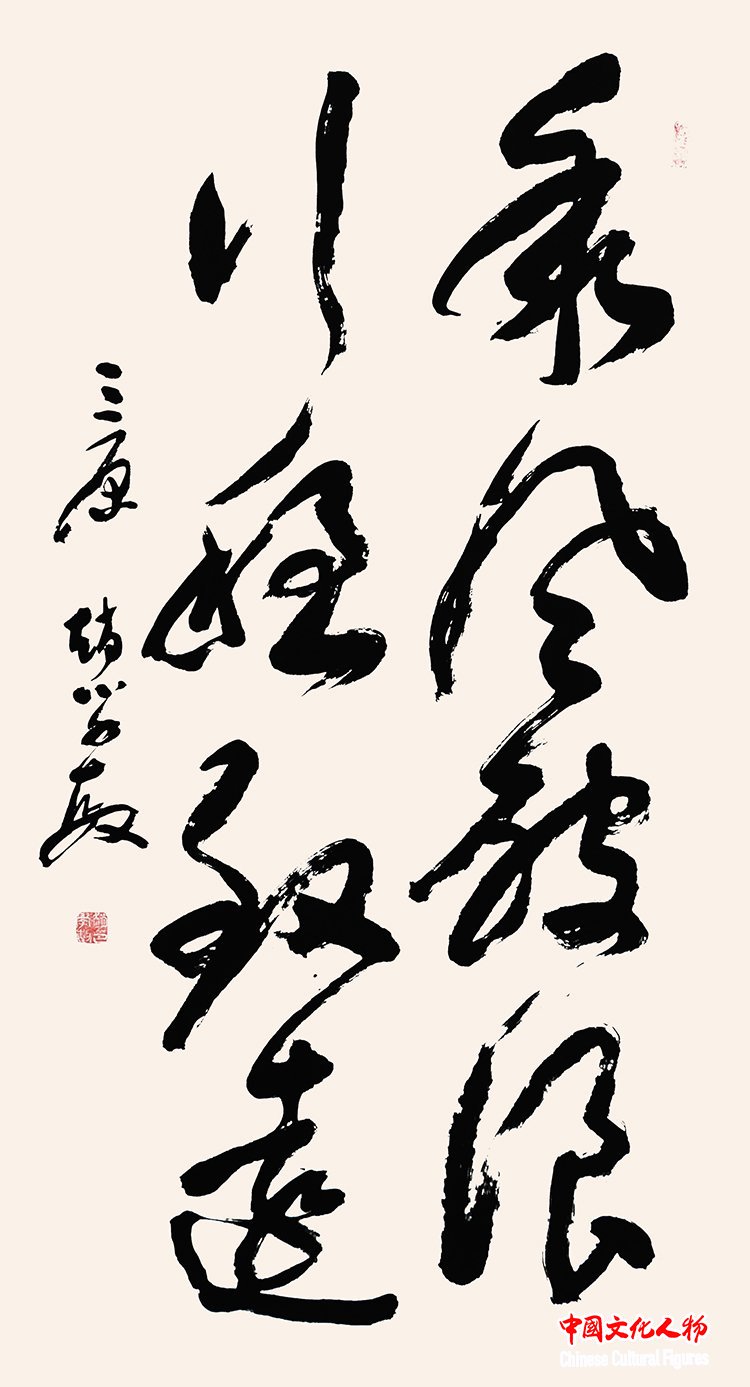 乘风破浪
行稳致远
三原 趙学敏
中國文化人物
Chinese Cultural Figures